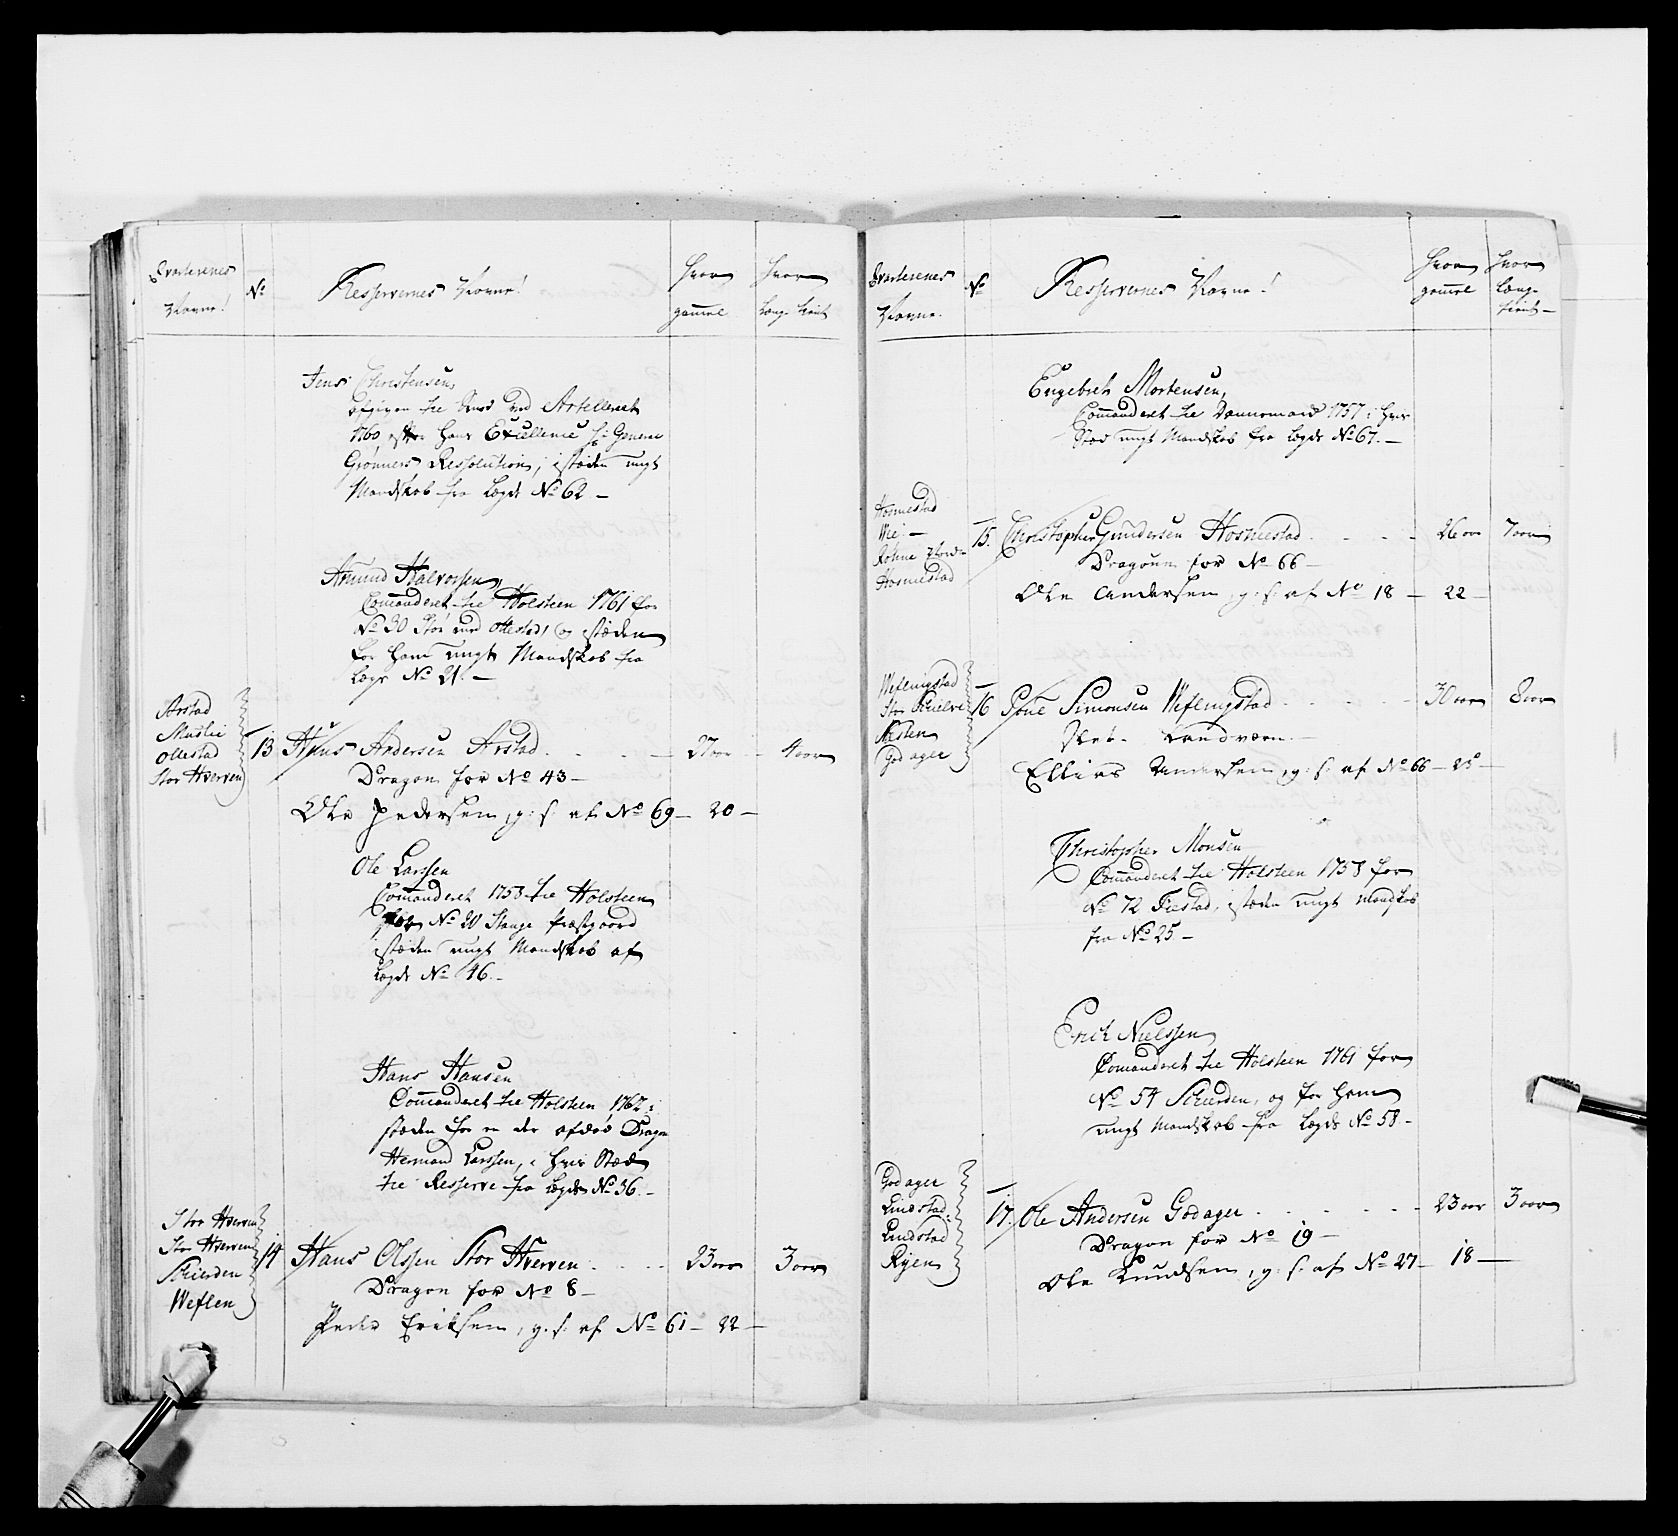 Qvarterenes
Navne!
No
Resservernes Navne!
Hvor
gammel
Hvor
Længe tient
Jens Christensen,
afgiven til Kneet ved Artelleriet
1760 efter Hans Excellence Hr General
Grønners Ressolution, i støden ungt
Mandskab fra Lægd No 62 -
Amund Halvorsen,
Comanderet til Holsteen 1761 for
No 30 Stor med Ottestad, og i støden
for ham ungt Mandskab fra
Lægd No 21. -
Arstad
Muslie
Ottestad
Stor Hverven
13
Hans Andersen Arstad
27 aar - 4 aar
Dragon for No 43 -
Ole Pedersen, g: s: af No 69 - 20 -
Ole Larssen
Comanderet 1758 til Holsteen
for No 20 Stange Præstgaard
i støden ungt Mandskab af
Lægd No 46. -
Hans Hansen
Commanderet til Holsteen 1762 i
støden for en der afdød Dragon
Hermand Larssen, i hvis Stæd
til Resserve fra Lægden No 36. -
Stor Hverven
Stor Hverven
Schierden
Weflen
14
Hans Olssen Stor Hverven
23 aar 3 aar
Dragon for No 8 -
Peder Eriksen, g: s: af No 61 - 22 -
Qvarterenes
Navne.
No
Resservernes Navne!
Hvor
gammel
Hvor
Længe
tient -
Engebret Mortensen,
Comanderet til Dannemark 1757 i hvis
Stæd ungt Mandskab fra Lægd No 67. -
Hosmestad
Wej -
Hosmestad
15.
Christopher Gundersen Hosmestad
26 aar 7 aar
Dragoun for No 66 -
Ole Andersen, g: s: af No 18 - 22 -
Weflingstad
Stor Schielve
Nesten
Godager
16
Poul Simonsen Weflingstad
30 aar 8 aar
Landværn -
Ellias Andersen, g: s: af No 66 - 25 -
Christopher Monsen
Comanderet til Holsteen 1758 for
No 72 Fiestad, i støden ungt Mandskab
fra No 25 -
Erich Nielssen
Comanderet til Holsteen 1761 for
No 54 Schierden, og for ham
ungt Mandskab fra Lægd No 58 -
Godager
Lindstad
Lindstad
Ryen
17.
Ole Andersen Godager
23 aar 3 aar
Dragon for No 19 -
Ole Knudsen, g: s: af No 27 - 18 -